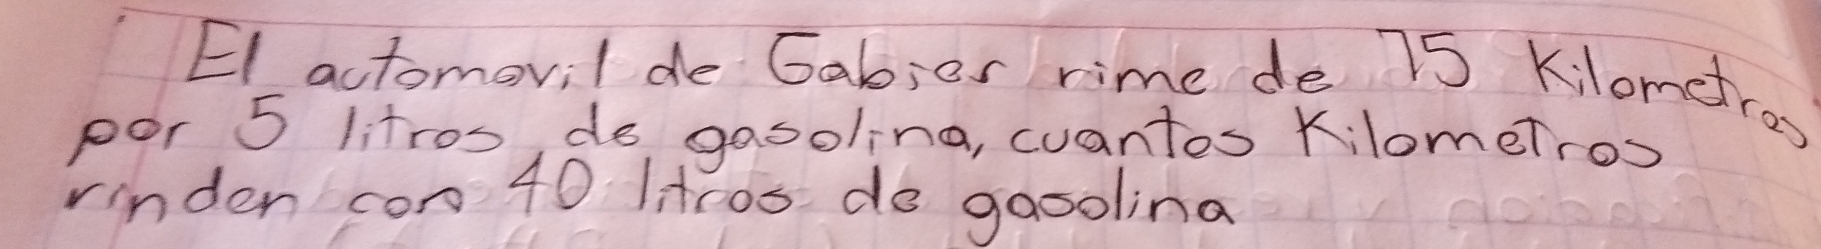 El automovil de Gabier rime de 75 Kilometros
por 5 litros de gasolina, cuantos Kilometros
rinden con 40 litros de gasolina